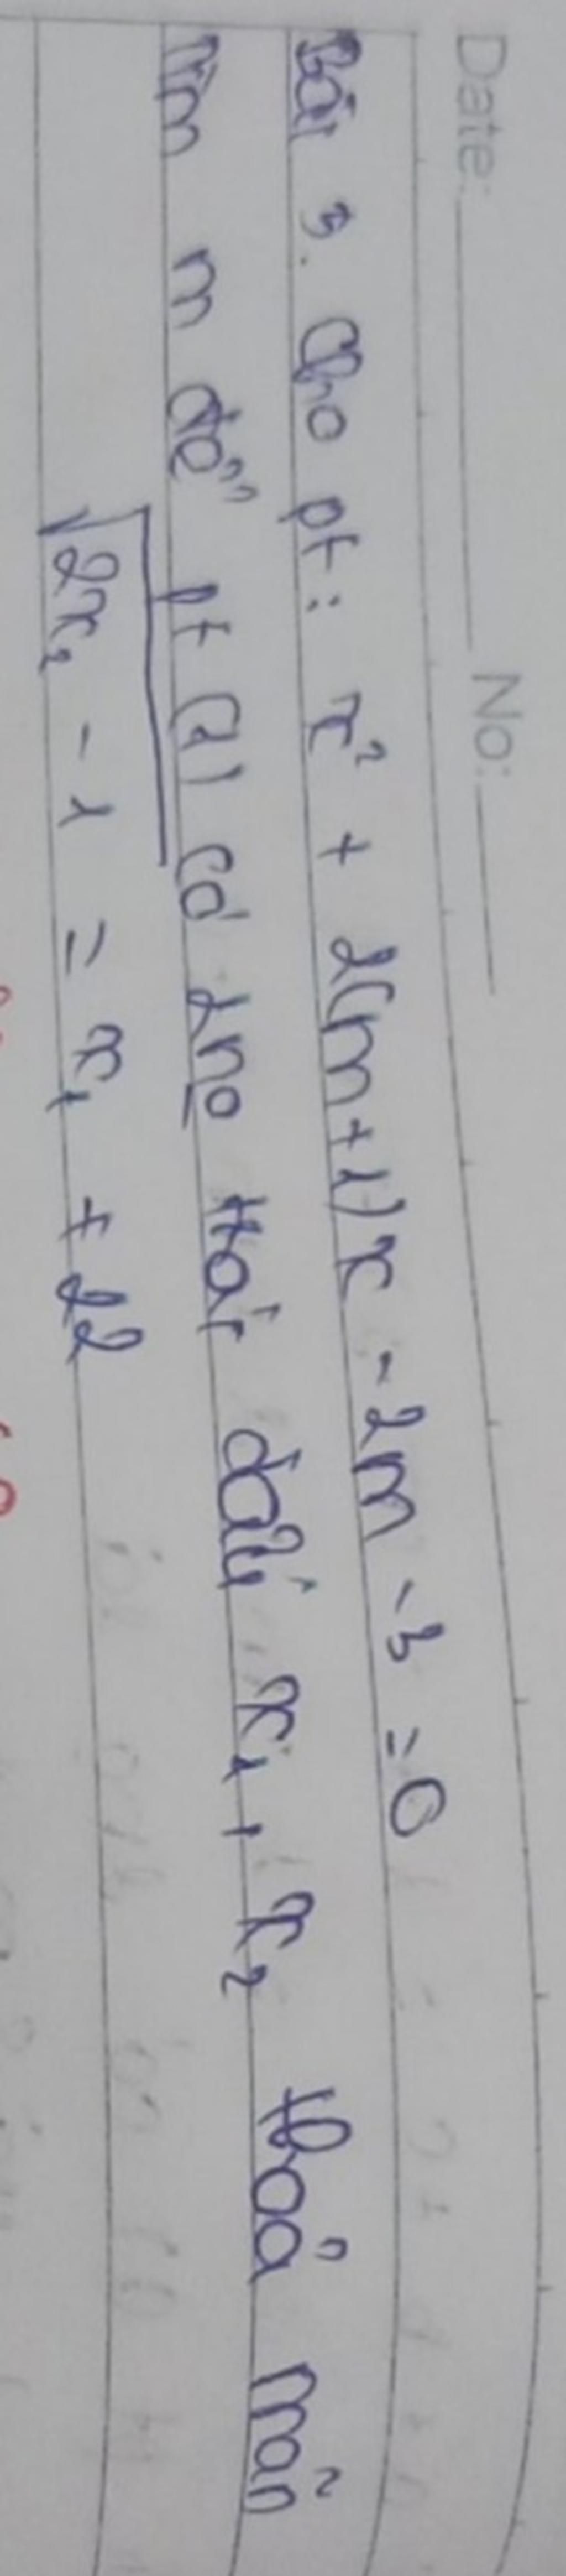 Date: No:
Bài 3. Cho pt: x² + 2(m+1)x - 2m - 3 = 0
Tìm m để pt (1) có 2 no trái dấu x₁, x₂ thoả mãn
√(2x₂ - 1) = x₁ + 22